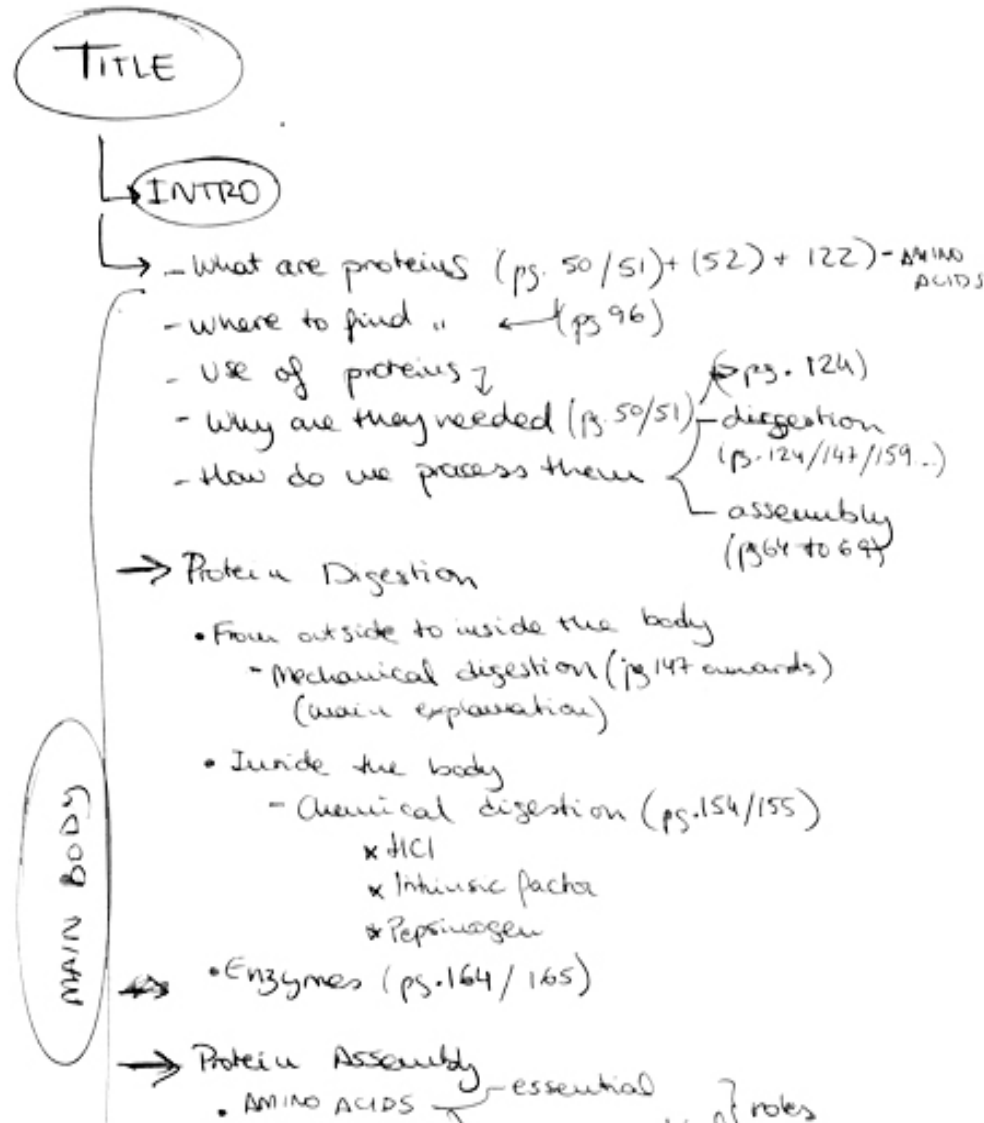 TITLE
INTRO
- What are proteins (pg. 50/51) + (52) + 122) - AMINO ACIDS
- Where to find " ← (pg 96)
- Use of proteins
- Why are they needed (pg. 50/51)
- How do we process them
→ pg. 124)
- digestion
(pg. 124/147/159...)
- assembly
(pg 64 to 69)
→ Protein Digestion
• From outside to inside the body
- Mechanical digestion (pg 147 onwards)
(main explanation)
• Inside the body
- Chemical digestion (pg. 154/155)
* HCl
* Intrinsic factor
* Pepsinogen
• Enzymes (pg. 164/165)
MAIN BODY
→ Protein Assembly
• AMINO ACIDS - essential
} roles